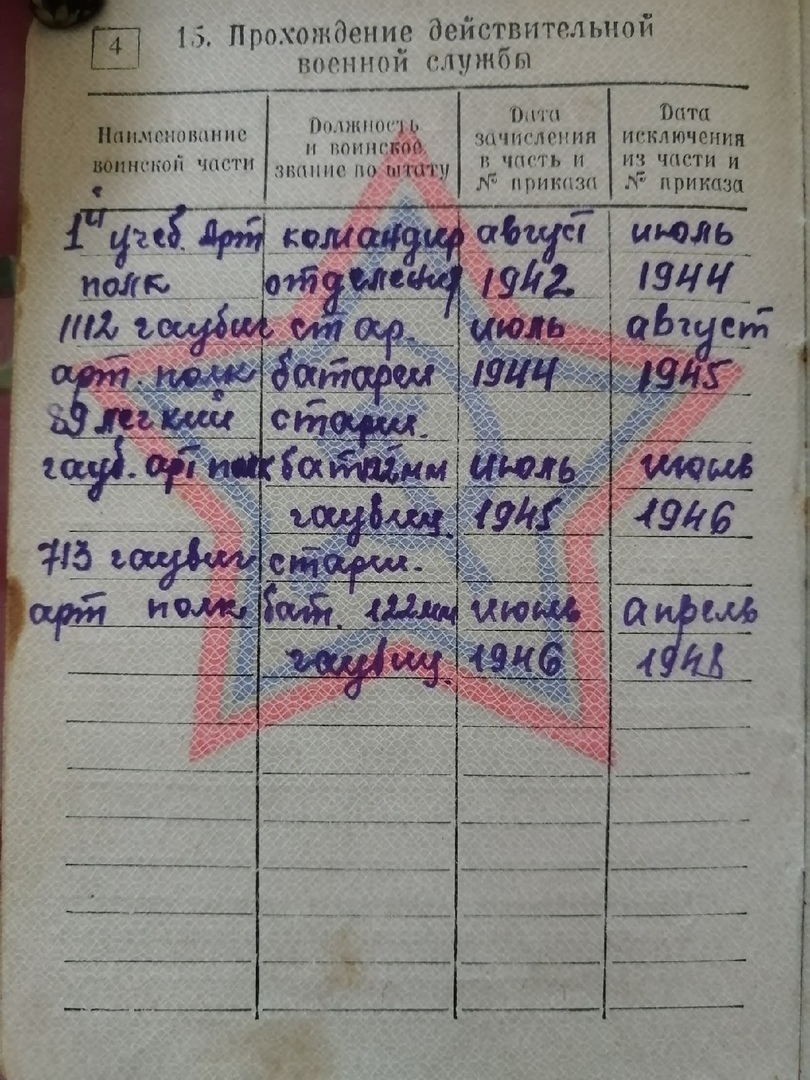 4
15. Прохождение действительной
военной службы
Наименование воинской части
Должность и воинское звание по штату
Дата зачисления в часть и № приказа
Дата исключения из части и № приказа
1й учеб. Арт командир август июль
полк отделения 1942 1944
1112 гаубиг ст ар. июль август
арт. полк батареи 1944 1945
89 легкий старш.
гауб. арт полк бат 122мм июль июнь
гаувиц. 1945 1946
713 гаувиг старш.
арт полк бат. 122мм июнь апрель
гаувиц. 1946 1948